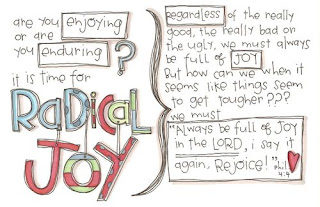 are you enjoying
or are
you enduring ?
it is time for
RaDiCaL
JOY
regardless of the really
good, the really bad or
the ugly, we must always
be full of JOY
But how can we when it
seems like things seem
to get tougher???
we must
"Always be full of JOY
in the LORD, i say it
again, Rejoice!" phil
4:4